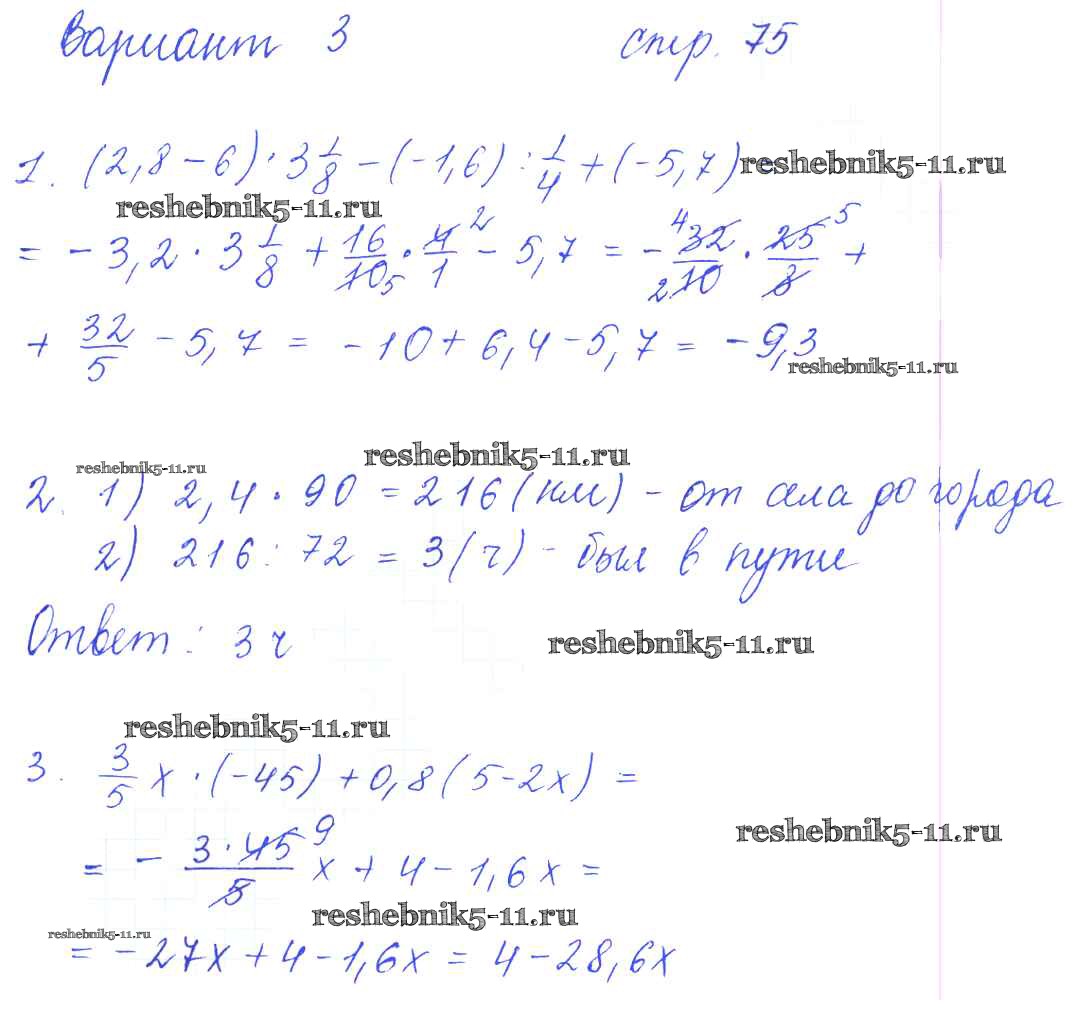 Вариант 3 стр. 75
1. (2,8 - 6) · 3 1/8 - (-1,6) : 1/4 + (-5,7) reshebnik5-11.ru
reshebnik5-11.ru
= - 3,2 · 3 1/8 + 16/10 5 · 4/1 2 - 5,7 = - 4 32/2 10 · 25/8 5 +
+ 32/5 - 5,7 = - 10 + 6,4 - 5,7 = - 9,3
reshebnik5-11.ru
reshebnik5-11.ru
reshebnik5-11.ru
2. 1) 2,4 · 90 = 216 (км) - от села до города
2) 216 : 72 = 3 (ч) - был в пути
Ответ: 3 ч
reshebnik5-11.ru
reshebnik5-11.ru
3. 3/5 x · (-45) + 0,8 (5 - 2x) =
reshebnik5-11.ru
= - 3 · 45 9/5 x + 4 - 1,6x =
reshebnik5-11.ru
reshebnik5-11.ru
= - 27x + 4 - 1,6x = 4 - 28,6x